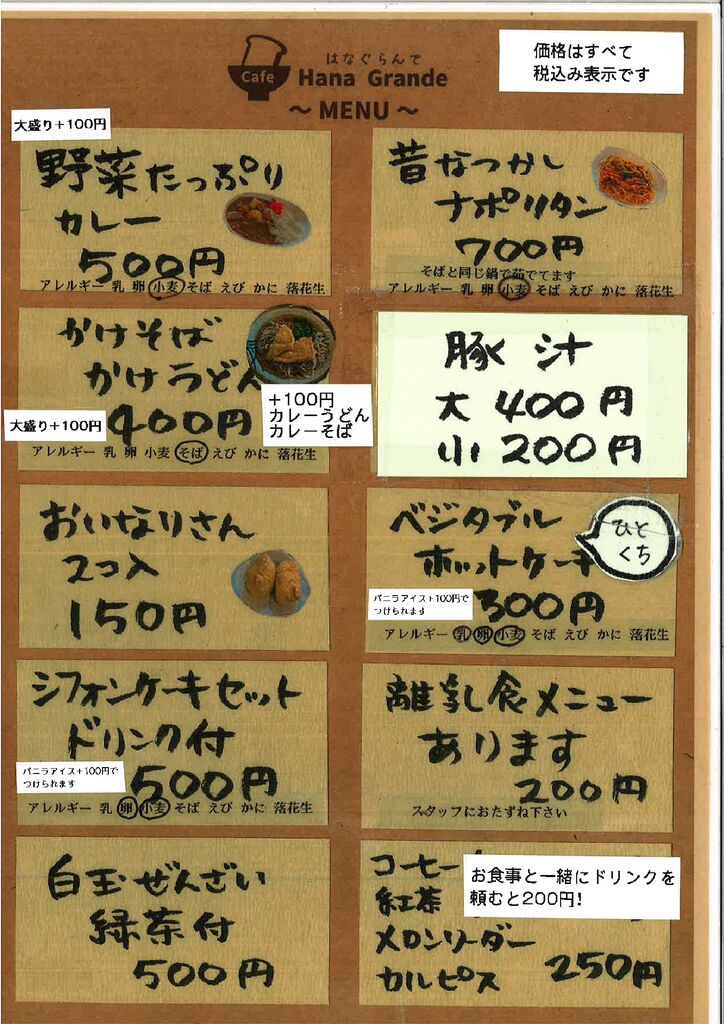 はなぐらんで
Cafe
Hana Grande
～ MENU ～
価格はすべて
税込み表示です
大盛り＋100円
野菜たっぷり
カレー
500円
アレルギー 乳 卵 小麦 そば えび かに 落花生
昔なつかし
ナポリタン
700円
そばと同じ鍋で茹でてます
アレルギー 乳 卵 小麦 そば えび かに 落花生
かけそば
かけうどん
大盛り＋100円
400円
＋100円
カレーうどん
カレーそば
アレルギー 乳 卵 小麦 そば えび かに 落花生
豚汁
大 400円
小 200円
おいなりさん
2コ入
150円
ベジタブル
ホットケーキ
ひと
くち
バニラアイス＋100円で
つけられます
300円
アレルギー 乳 卵 小麦 そば えび かに 落花生
シフォンケーキセット
ドリンク付
バニラアイス＋100円で
つけられます
500円
アレルギー 乳 卵 小麦 そば えび かに 落花生
離乳食メニュー
あります
200円
スタッフにおたずね下さい
白玉ぜんざい
緑茶付
500円
コーヒー
紅茶
メロンソーダー
カルピス
250円
お食事と一緒にドリンクを
頼むと200円!